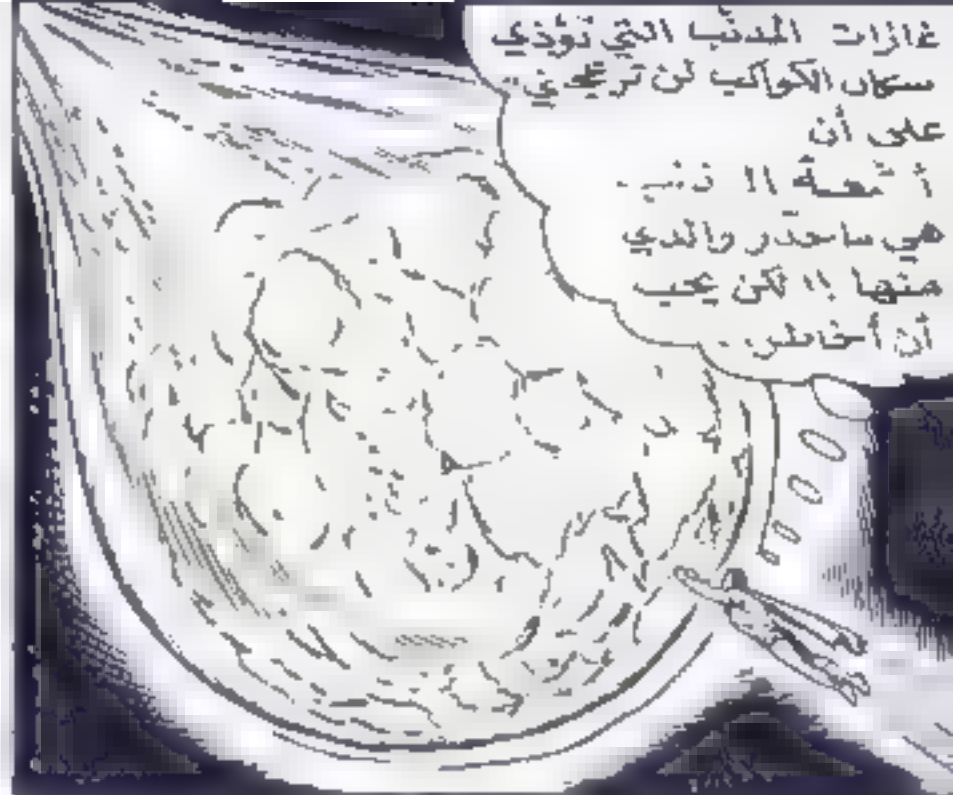 غازات المذنب التي تؤذي
سكان الكواكب لن تزعجني..
على أن
أشعة !! ذنبـ
هي ما حذر والدي
منها !! لكن يجب
أن أخاطر..